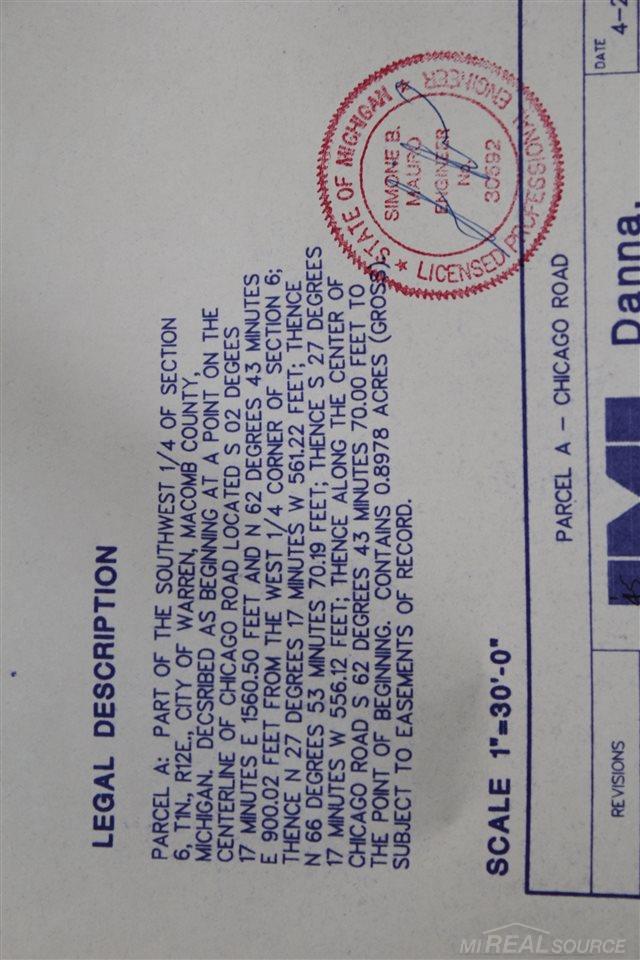 LEGAL DESCRIPTION
PARCEL A: PART OF THE SOUTHWEST 1/4 OF SECTION
6, T1N., R12E., CITY OF WARREN, MACOMB COUNTY,
MICHIGAN. DECSRIBED AS BEGINNING AT A POINT ON THE
CENTERLINE OF CHICAGO ROAD LOCATED S 02 DEGEES
17 MINUTES E 1560.50 FEET AND N 62 DEGREES 43 MINUTES
E 900.02 FEET FROM THE WEST 1/4 CORNER OF SECTION 6;
THENCE N 27 DEGREES 17 MINUTES W 561.22 FEET; THENCE
N 66 DEGREES 53 MINUTES 70.19 FEET; THENCE S 27 DEGREES
17 MINUTES W 556.12 FEET; THENCE ALONG THE CENTER OF
CHICAGO ROAD S 62 DEGREES 43 MINUTES 70.00 FEET TO
THE POINT OF BEGINNING. CONTAINS 0.8978 ACRES (GROSS);
SUBJECT TO EASEMENTS OF RECORD.
STATE OF MICHIGAN
SIMONE B.
MAURO
ENGINEER
No.
30692
LICENSED PROFESSIONAL ENGINEER
SCALE 1"=30'-0"
PARCEL A - CHICAGO ROAD
DATE
4-2
REVISIONS
Danna,
MIREALSOURCE